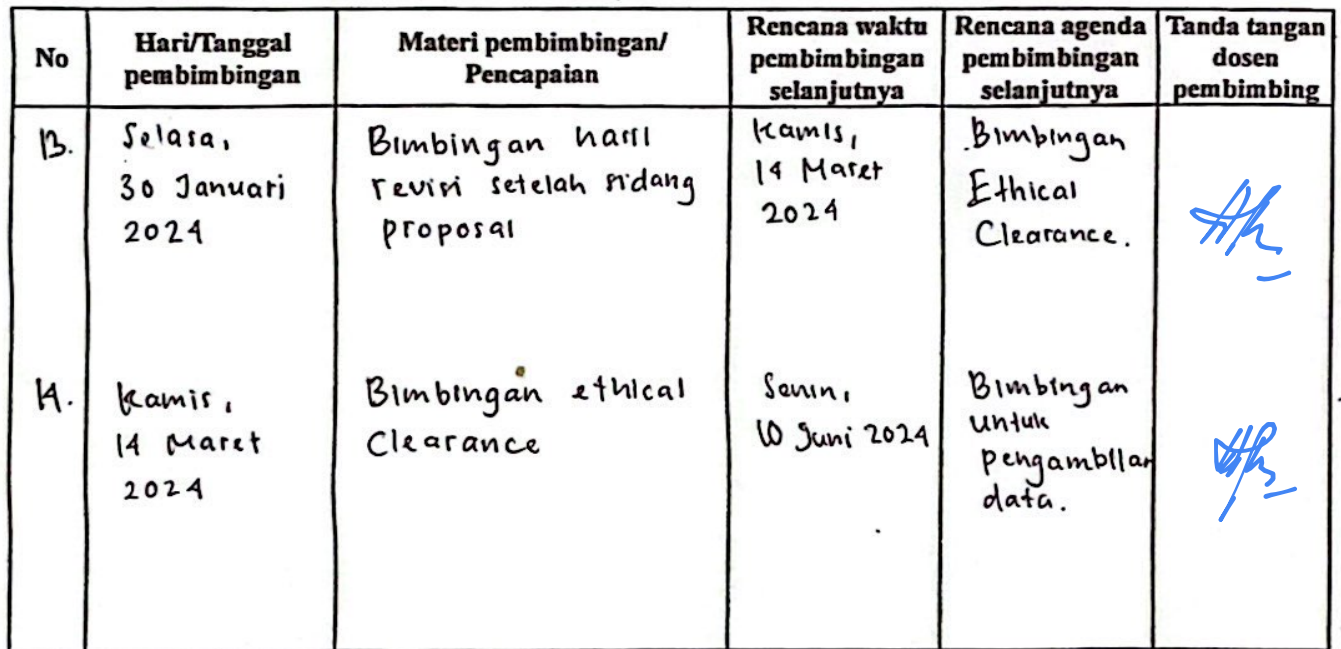 No
Hari/Tanggal
pembimbingan
Materi pembimbingan/
Pencapaian
Rencana waktu
pembimbingan
selanjutnya
Rencana agenda
pembimbingan
selanjutnya
Tanda tangan
dosen
pembimbing
13.
Selasa,
30 Januari
2024
Bimbingan hasil
revisi setelah sidang
proposal
Kamis,
14 Maret
2024
Bimbingan
Ethical
Clearance.
14.
Kamis,
14 Maret
2024
Bimbingan ethical
Clearance
Senin,
10 Juni 2024
Bimbingan
untuk
pengambilan
data.